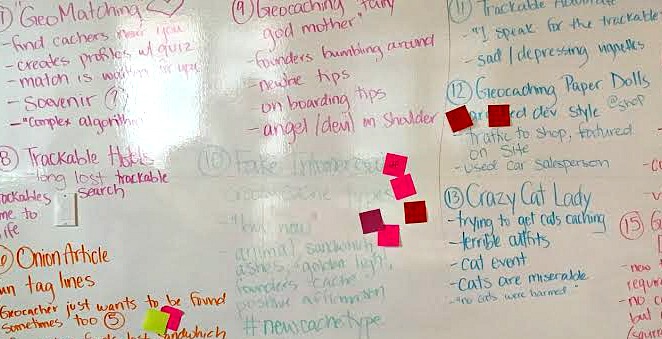 "GeoMatching
- find cachers near you
- creates profiles w/ quiz
- match is
- Souvenir ?
- "Complex algorithm
8 Trackable
- long lost trackable
search
me to
ife
Onion Article
un tag lines
Geocacher just wants to be found
sometimes too 5
9 Geocaching "fairy
god mother"
- founders bumbling around
- newbie tips
- on boarding tips
- angel/devil on shoulder
10 Fake
types
- "but now"
- animal sandwich,
ashes, "golden light,
founders "cache",
positive affirmation
#newcachetype
11 Trackable
- "I speak for the trackable
- sad/depressing vignettes
12 Geocaching Paper Dolls
dev style @shop
- traffic to shop, featured
on site
- used car salesperson
13 Crazy Cat Lady
- trying to get cats caching
- terrible outfits
- cat event
- cats are miserable
- "no cats were harmed"
15 G
- new
requir
- no c
but